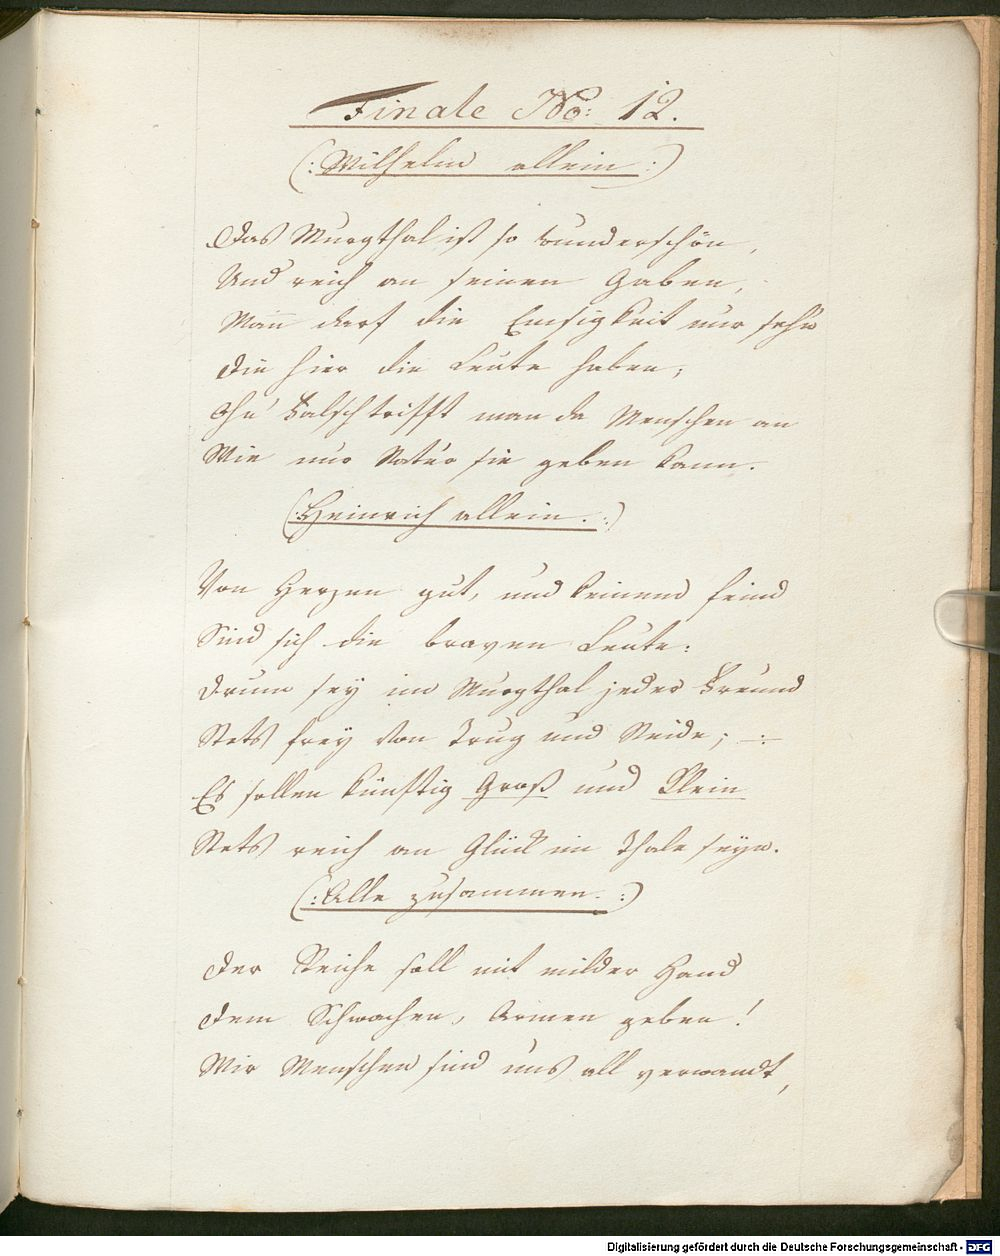 Finale No: 12.
(: Wilhelm allein :)
Das Murgthal ist so wunderschön,
Und reich an seinen Gaben,
Man darf die Emsigkeit nur seh'n
Die hier die Leute haben;
Ohn' Falsch trifft man da Menschen an
Wie nur Natur sie geben kann.
(: Heinrich allein. :)
Von Herzen gut, und keinem feind
Sind sich die braven Leute:
Drum sey im Murgthal jeder Freund
Stets frey von Trug und Neide; -:-
Es sollen künftig Groß und Klein
Stets reich an Glück im Thale seyn.
(: Alle zusammen. :)
Der Reiche soll mit milder Hand
Dem Schwachen, Armen geben!
Wir Menschen sind uns all verwandt,
Digitalisierung gefördert durch die Deutsche Forschungsgemeinschaft - DFG